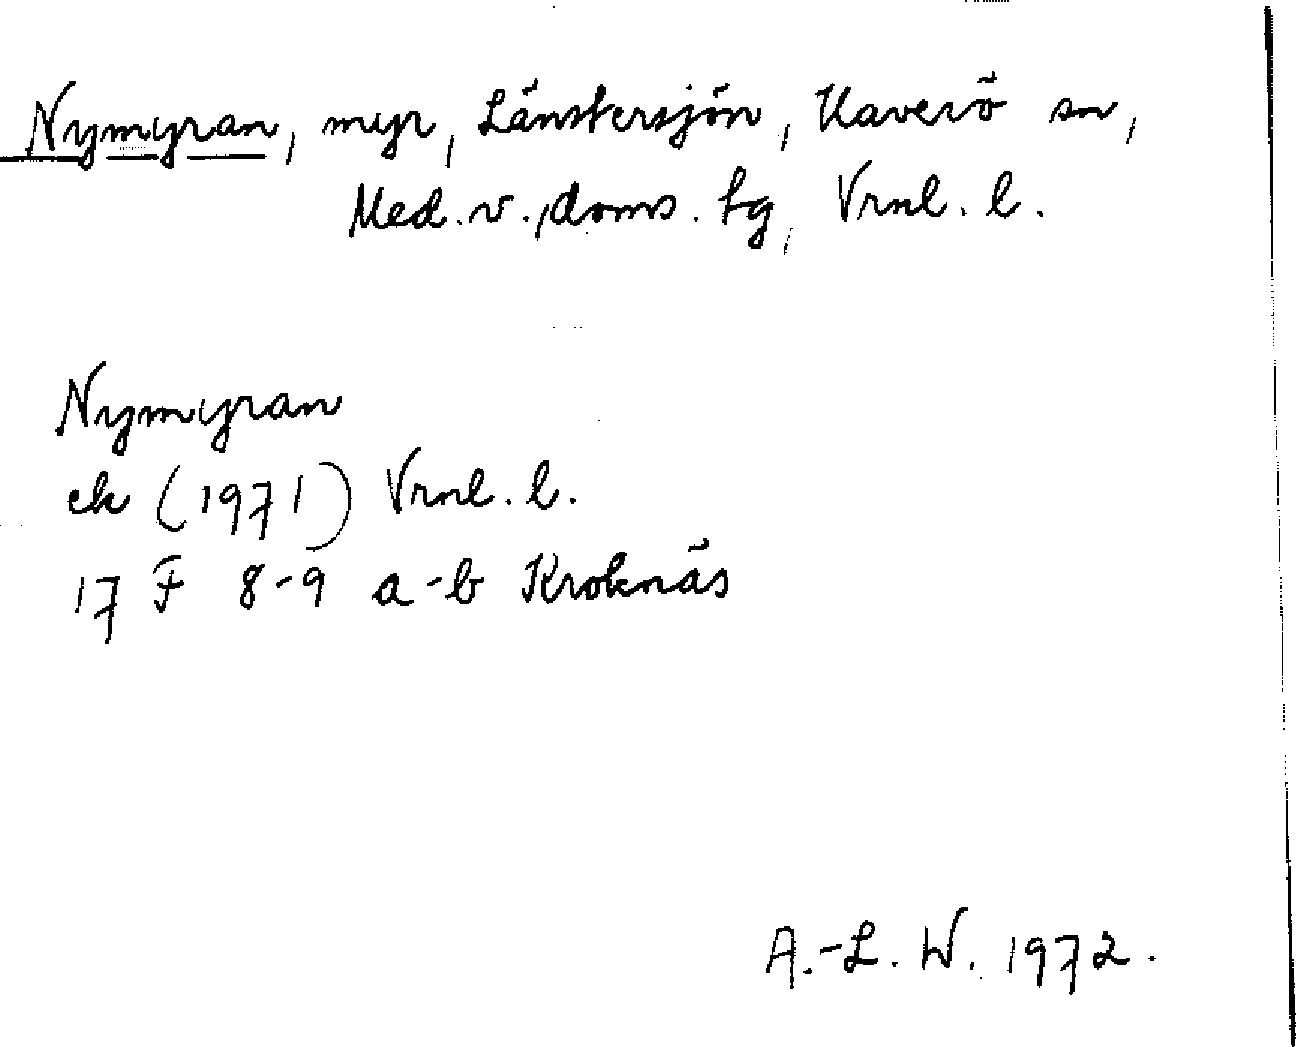 Nymyran, myr, Länstersjön, Haverö sn,
Med. v., doms. tg, Vrnl. l.
Nymyran
ek (1971) Vrnl. l.
17 F 8-9 a-b Kroknäs
A.-L. W. 1972.